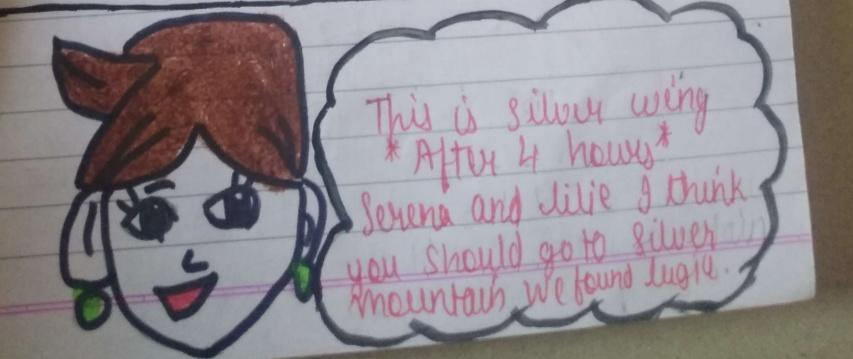 This is silver wing
*After 4 hours*
Serena and lilie I think
you should go to silver
mountain we found lugia.